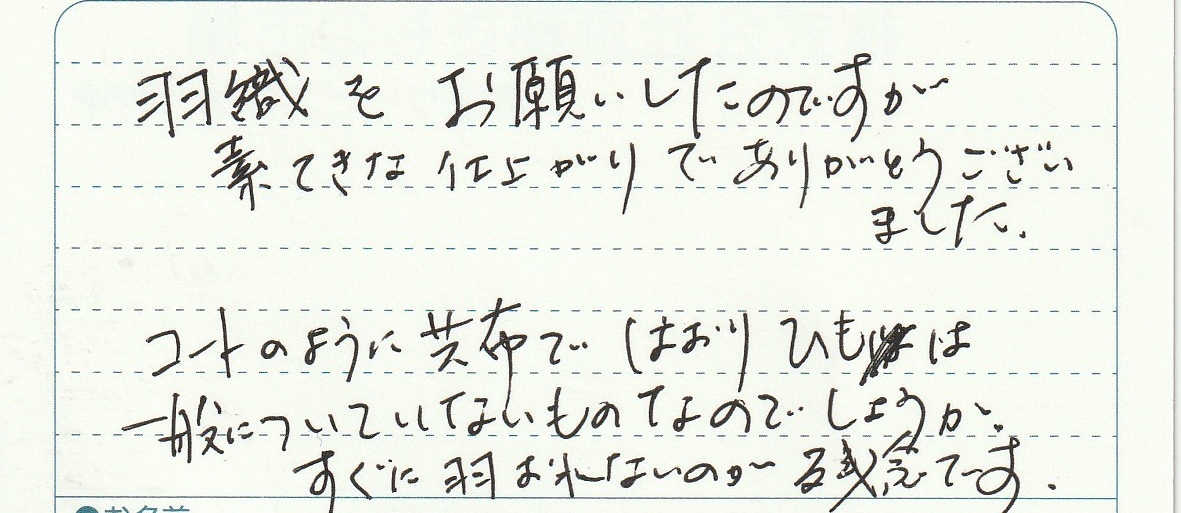 羽織を お願いしたのですが
素てきな 仕上がりで ありがとうござい
ました。
コートのように共布で はおりひもは
一般についていないものなのでしょうか。
すぐに羽おれないのが 残念です.
お名前